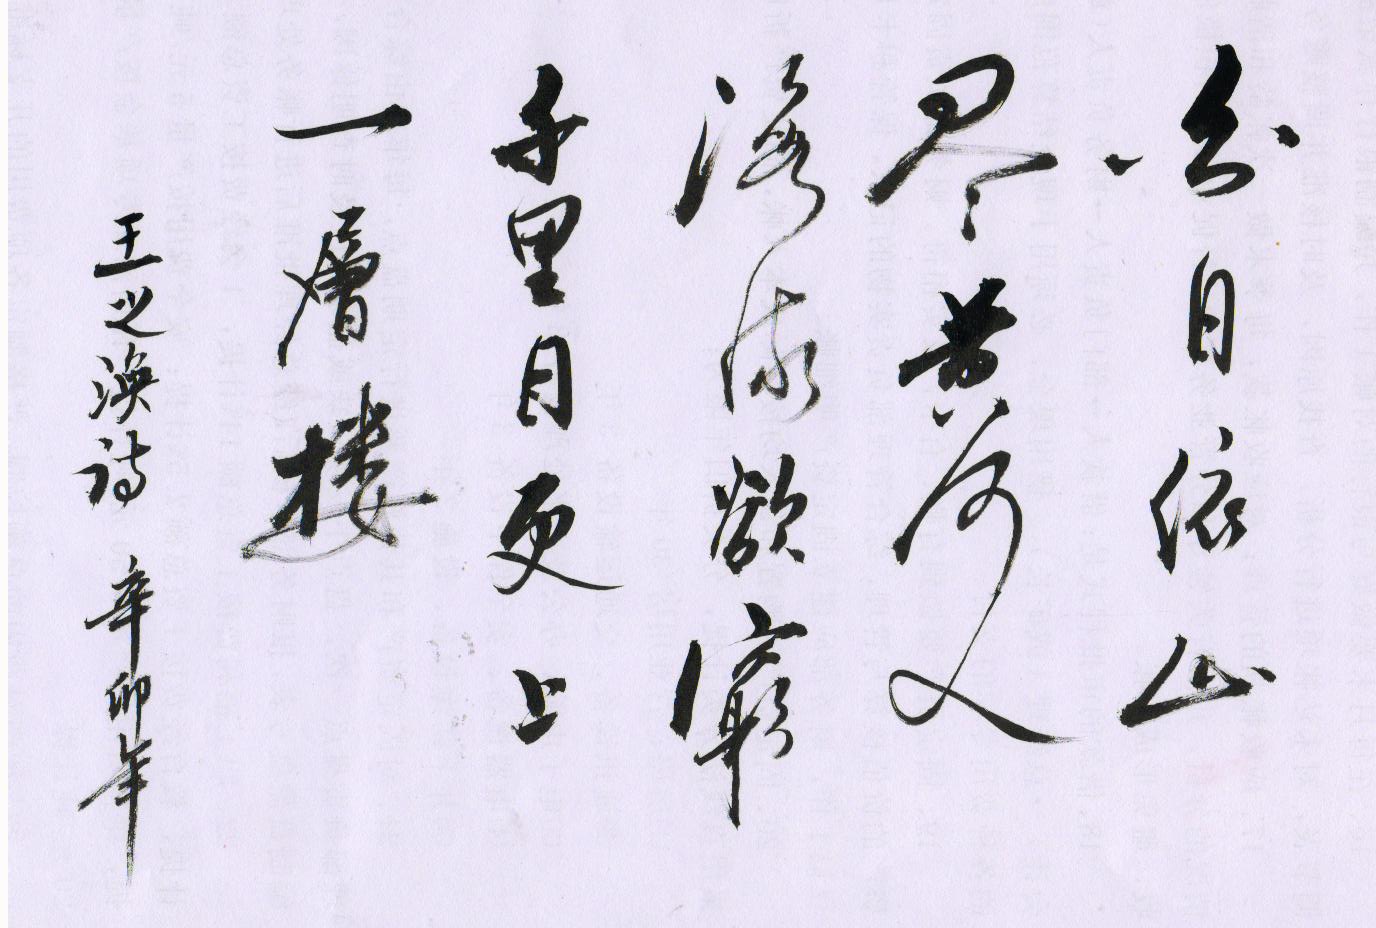 白日依山
尽黄河入
海流欲窮
千里目更上
一層楼
王之涣诗 辛卯年